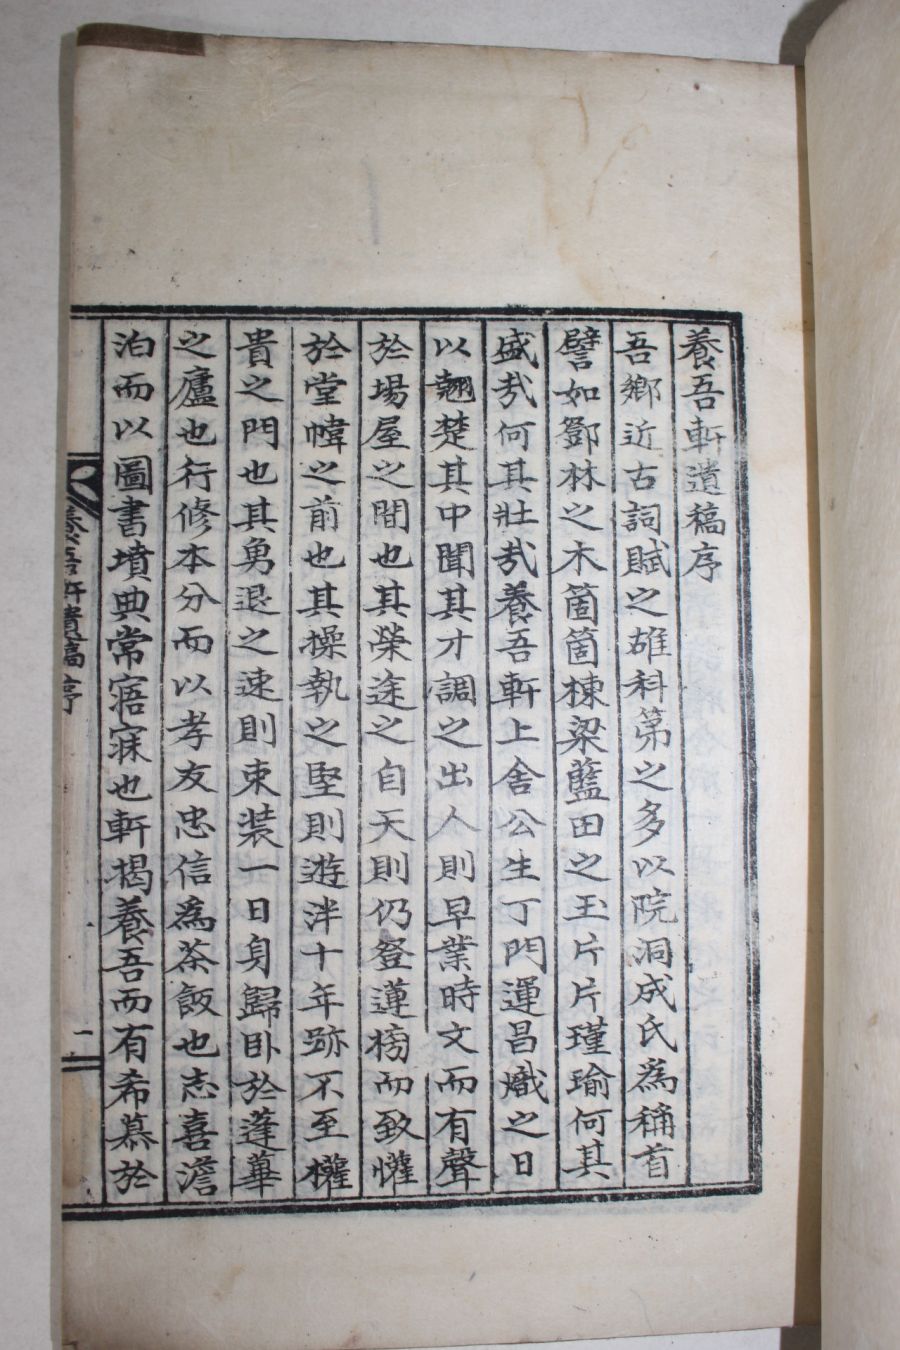 養吾軒遺稿序
吾鄕近古詞賦之雄科第之多以院洞成氏為稱首
譬如鄧林之木箇箇棟梁藍田之玉片片瑾瑜何其
盛㢤何其壯㢤養吾軒上舍公生丁門運昌熾之日
以翹楚其中聞其才調之出人則早業時文而有聲
於場屋之間也其榮途之自天則仍登蓮榜而致懽
於堂幃之前也其操執之堅則遊泮十年跡不至權
貴之門也其勇退之速則束装一日身歸卧於蓬蓽
之廬也行修本分而以孝友忠信為茶飯也志喜澹
泊而以圖書墳典常寤寐也軒揭養吾而有希慕於
養吾軒遺稿序
一